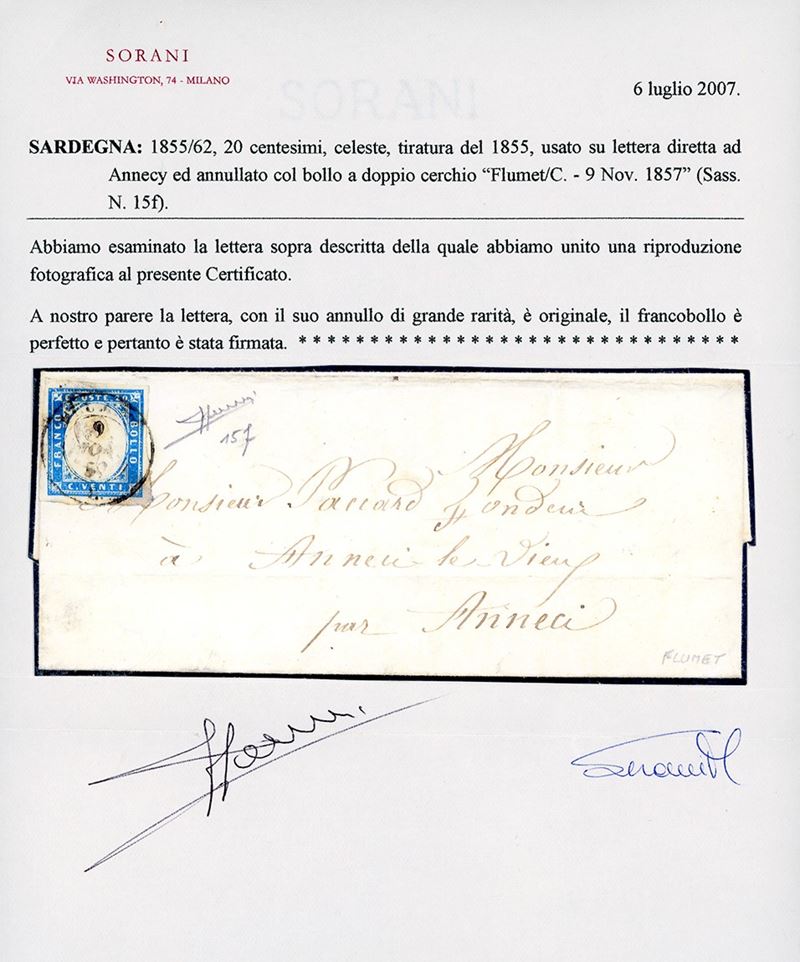 SORANI
VIA WASHINGTON, 74 - MILANO
SORANI
6 luglio 2007.
SARDEGNA: 1855/62, 20 centesimi, celeste, tiratura del 1855, usato su lettera diretta ad
Annecy ed annullato col bollo a doppio cerchio “Flumet/C. - 9 Nov. 1857” (Sass.
N. 15f).
Abbiamo esaminato la lettera sopra descritta della quale abbiamo unito una riproduzione
fotografica al presente Certificato.
A nostro parere la lettera, con il suo annullo di grande rarità, è originale, il francobollo è
perfetto e pertanto è stata firmata. * * * * * * * * * * * * * * * * * * * * * * * * * * * * * * *
C. POSTE 20
FRANCO
BOLLO
C. VENTI
9
NOV
15f
Monsieur
Monsieur Paccard Fondeur
à Anneci le Vieux
par Anneci
FLUMET